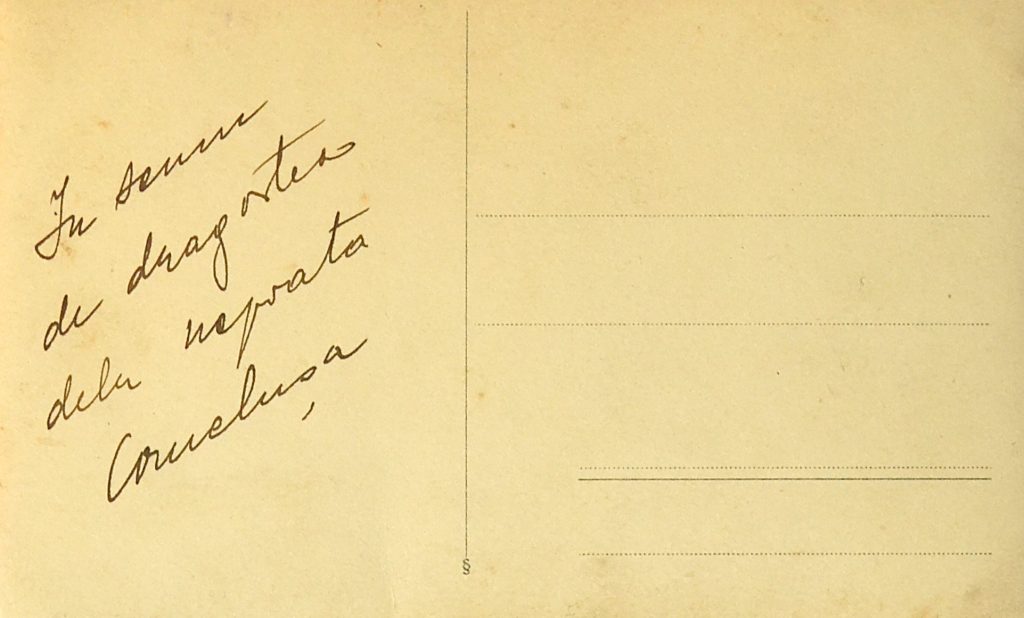 In semn
de dragoste
dela nepoata
Cornelușa
§